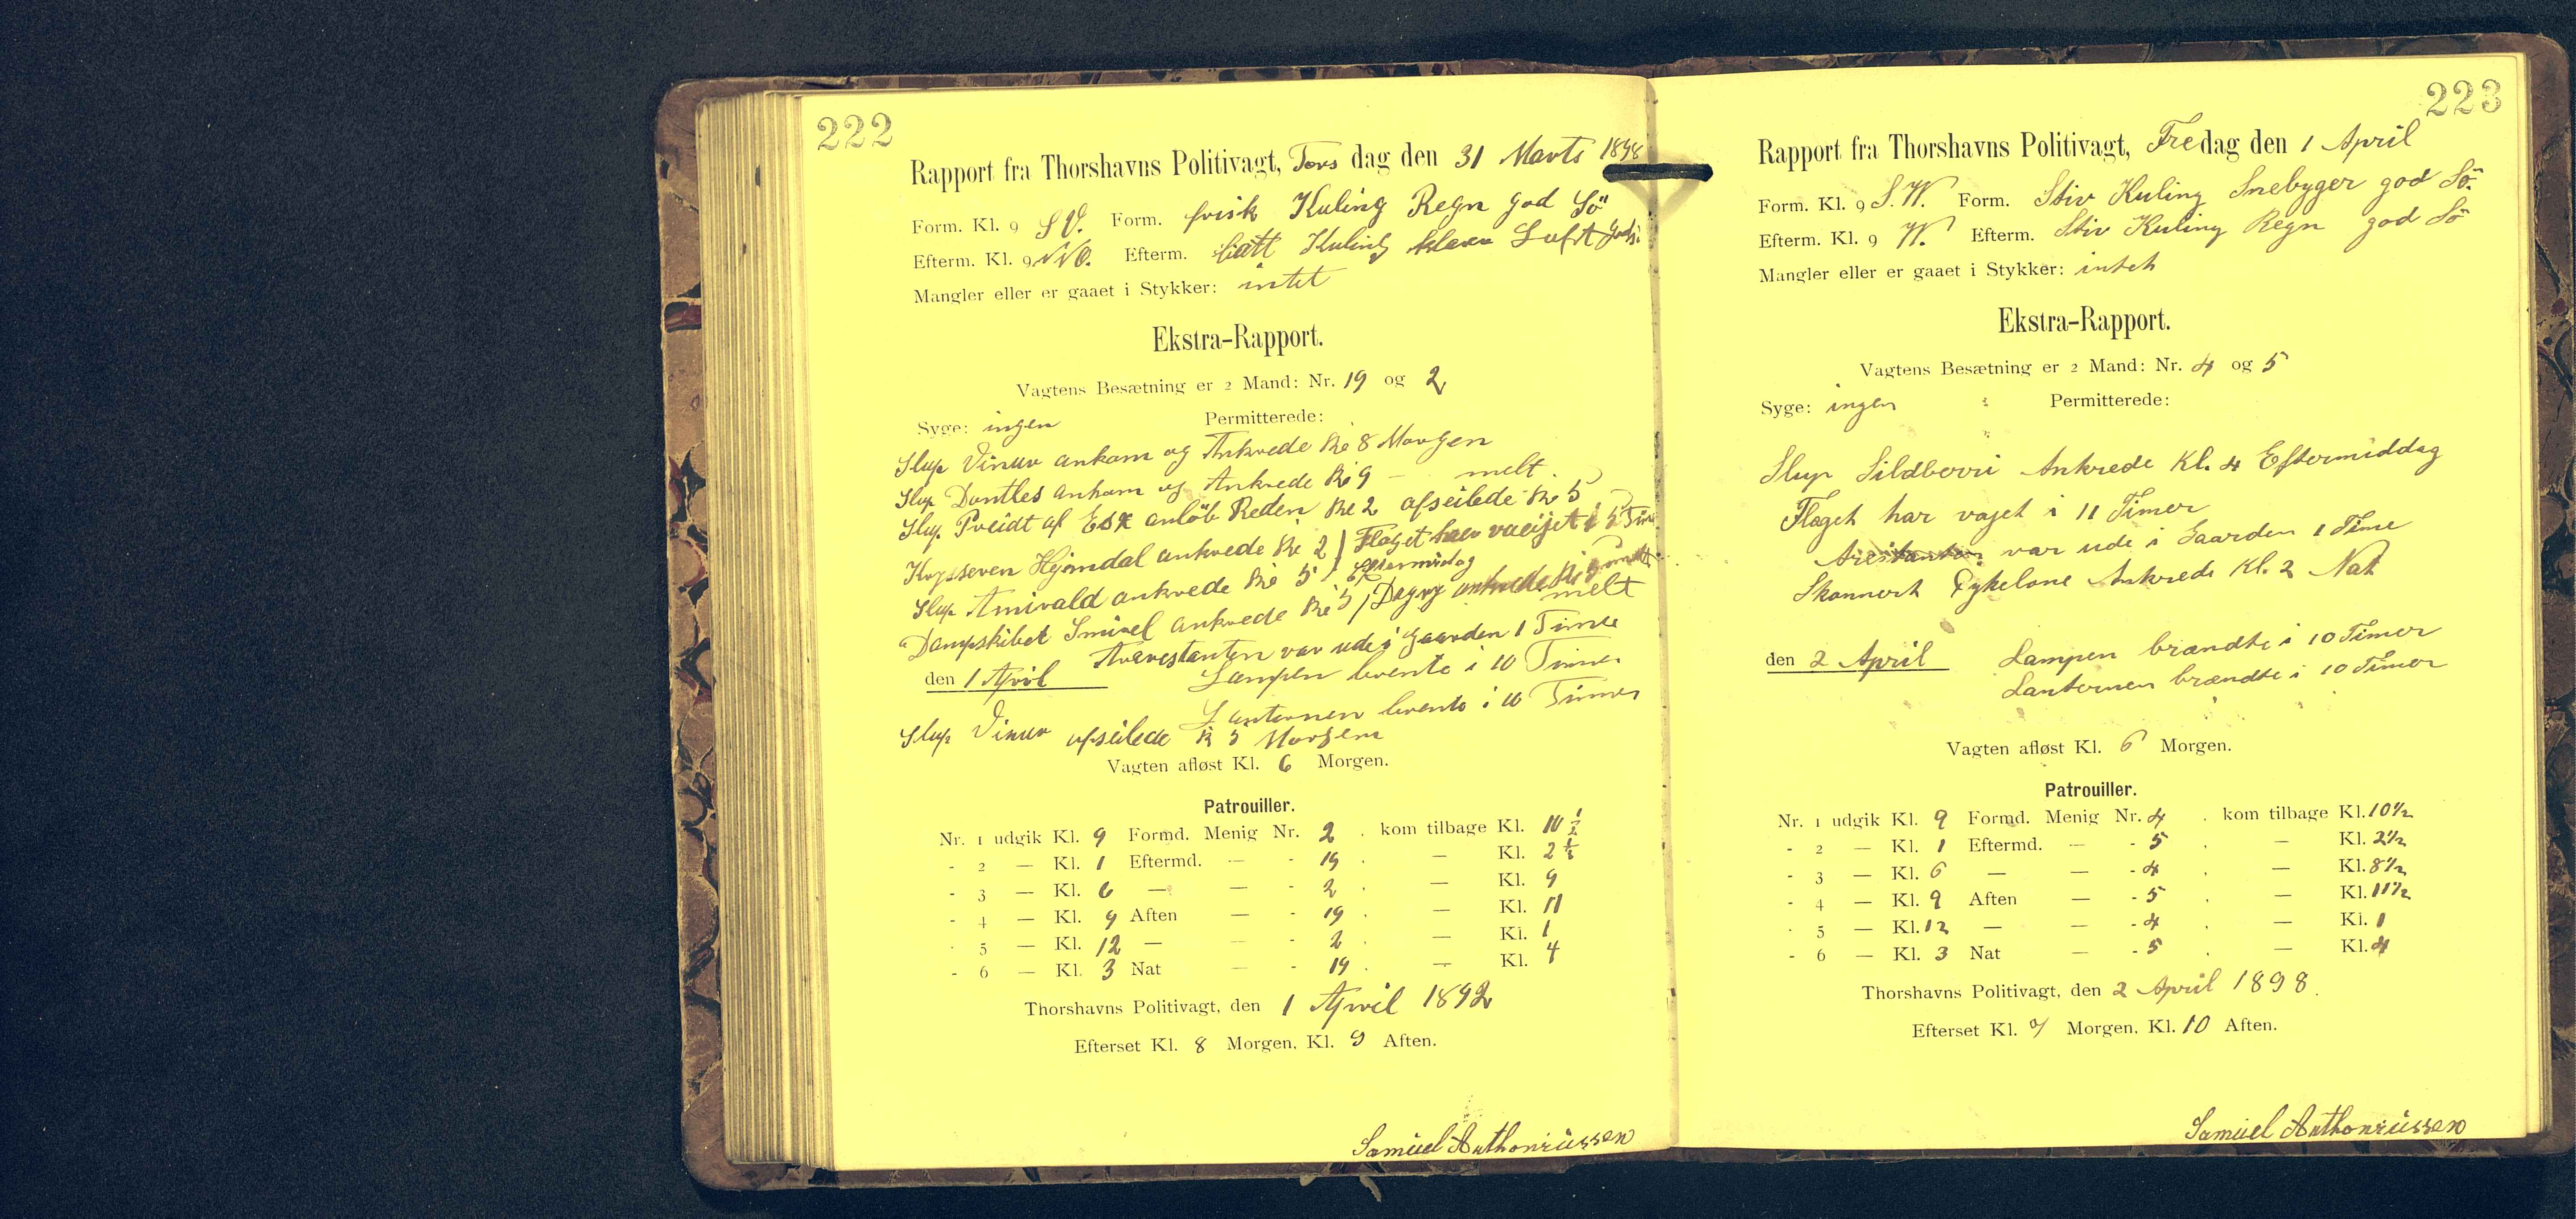 222
Rapport fra Thorshavns Politivagt, Tors dag den 31 Marts 1898
Form. Kl. 9 S V. Form. frisk Kuling Regn god Sö
Efterm. Kl. 9 NO. Efterm. Kuling klaren Luft
Mangler eller er gaaet i Stykker: intet
Ekstra-Rapport.
Vagtens Besætning er 2 Mand: Nr. 19 og 2
Syge: ingen Permitterede:
Slup Vinur ankom og Ankrede Kl 8 Morgen
Slup Dontles ankom og Ankrede Kl 9 — melt.
Slup af anlöb Reden Kl 2 afseilede Kl 5
ankrede Kl 2 / Flaget har vaeijet i
Slup ankrede Kl 5 / Eftermidag
Dampskibet Smirel ankrede Kl 5 / Dagny ankrede Kl melt
Ararestanten var ude i Gaarden 1 Time
den 1 April Lampen brente i 10 Timer
Lanternen brente i 10 Timer
Slup Vinur afseilede Kl 5 Morgen
Vagten afløst Kl. 6 Morgen.
Patrouiller.
Nr. 1 udgik Kl. 9 Formd. Menig Nr. 2 . kom tilbage Kl. 10 1/2
- 2 — Kl. 1 Eftermd. — - 19 . — Kl. 2 1/2
- 3 — Kl. 6 — — - 2 . — Kl. 9
- 4 — Kl. 9 Aften — - 19 . — Kl. 11
- 5 — Kl. 12 — — - 2 . — Kl. 1
- 6 — Kl. 3 Nat — - 19 . — Kl. 4
Thorshavns Politivagt, den 1 April 1892
Efterset Kl. 8 Morgen, Kl. 9 Aften.
Samüel Anthoniüssen
223
Rapport fra Thorshavns Politivagt, Fredag den 1 April
Form. Kl. 9 S. W. Form. Stiv Kuling Snebyger god Sö.
Efterm. Kl. 9 W. Efterm. Stiv Kuling Regn god Sö
Mangler eller er gaaet i Stykker: intet
Ekstra-Rapport.
Vagtens Besætning er 2 Mand: Nr. 4 og 5
Syge: ingen Permitterede:
Slup Sildberri Ankrede Kl. 4 Eftermiddag
Flaget har vajet i 11 Timer
Arestanten var ude i Gaarden 1 Time
Skonnert Cykelone Ankrede Kl. 2 Nat
den 2 April Lampen brændte i 10 Timer
Lanternen brændte i 10 Timer
Vagten afløst Kl. 6 Morgen.
Patrouiller.
Nr. 1 udgik Kl. 9 Formd. Menig Nr. 4 . kom tilbage Kl. 10 1/2
- 2 — Kl. 1 Eftermd. — - 5 . — Kl. 2 1/2
- 3 — Kl. 6 — — - 4 . — Kl. 8 1/2
- 4 — Kl. 9 Aften — - 5 . — Kl. 11 1/2
- 5 — Kl. 12 — — - 4 . — Kl. 1
- 6 — Kl. 3 Nat — - 5 . — Kl. 4
Thorshavns Politivagt, den 2 April 1898.
Efterset Kl. 9 Morgen, Kl. 10 Aften.
Samüel Anthoniüssen